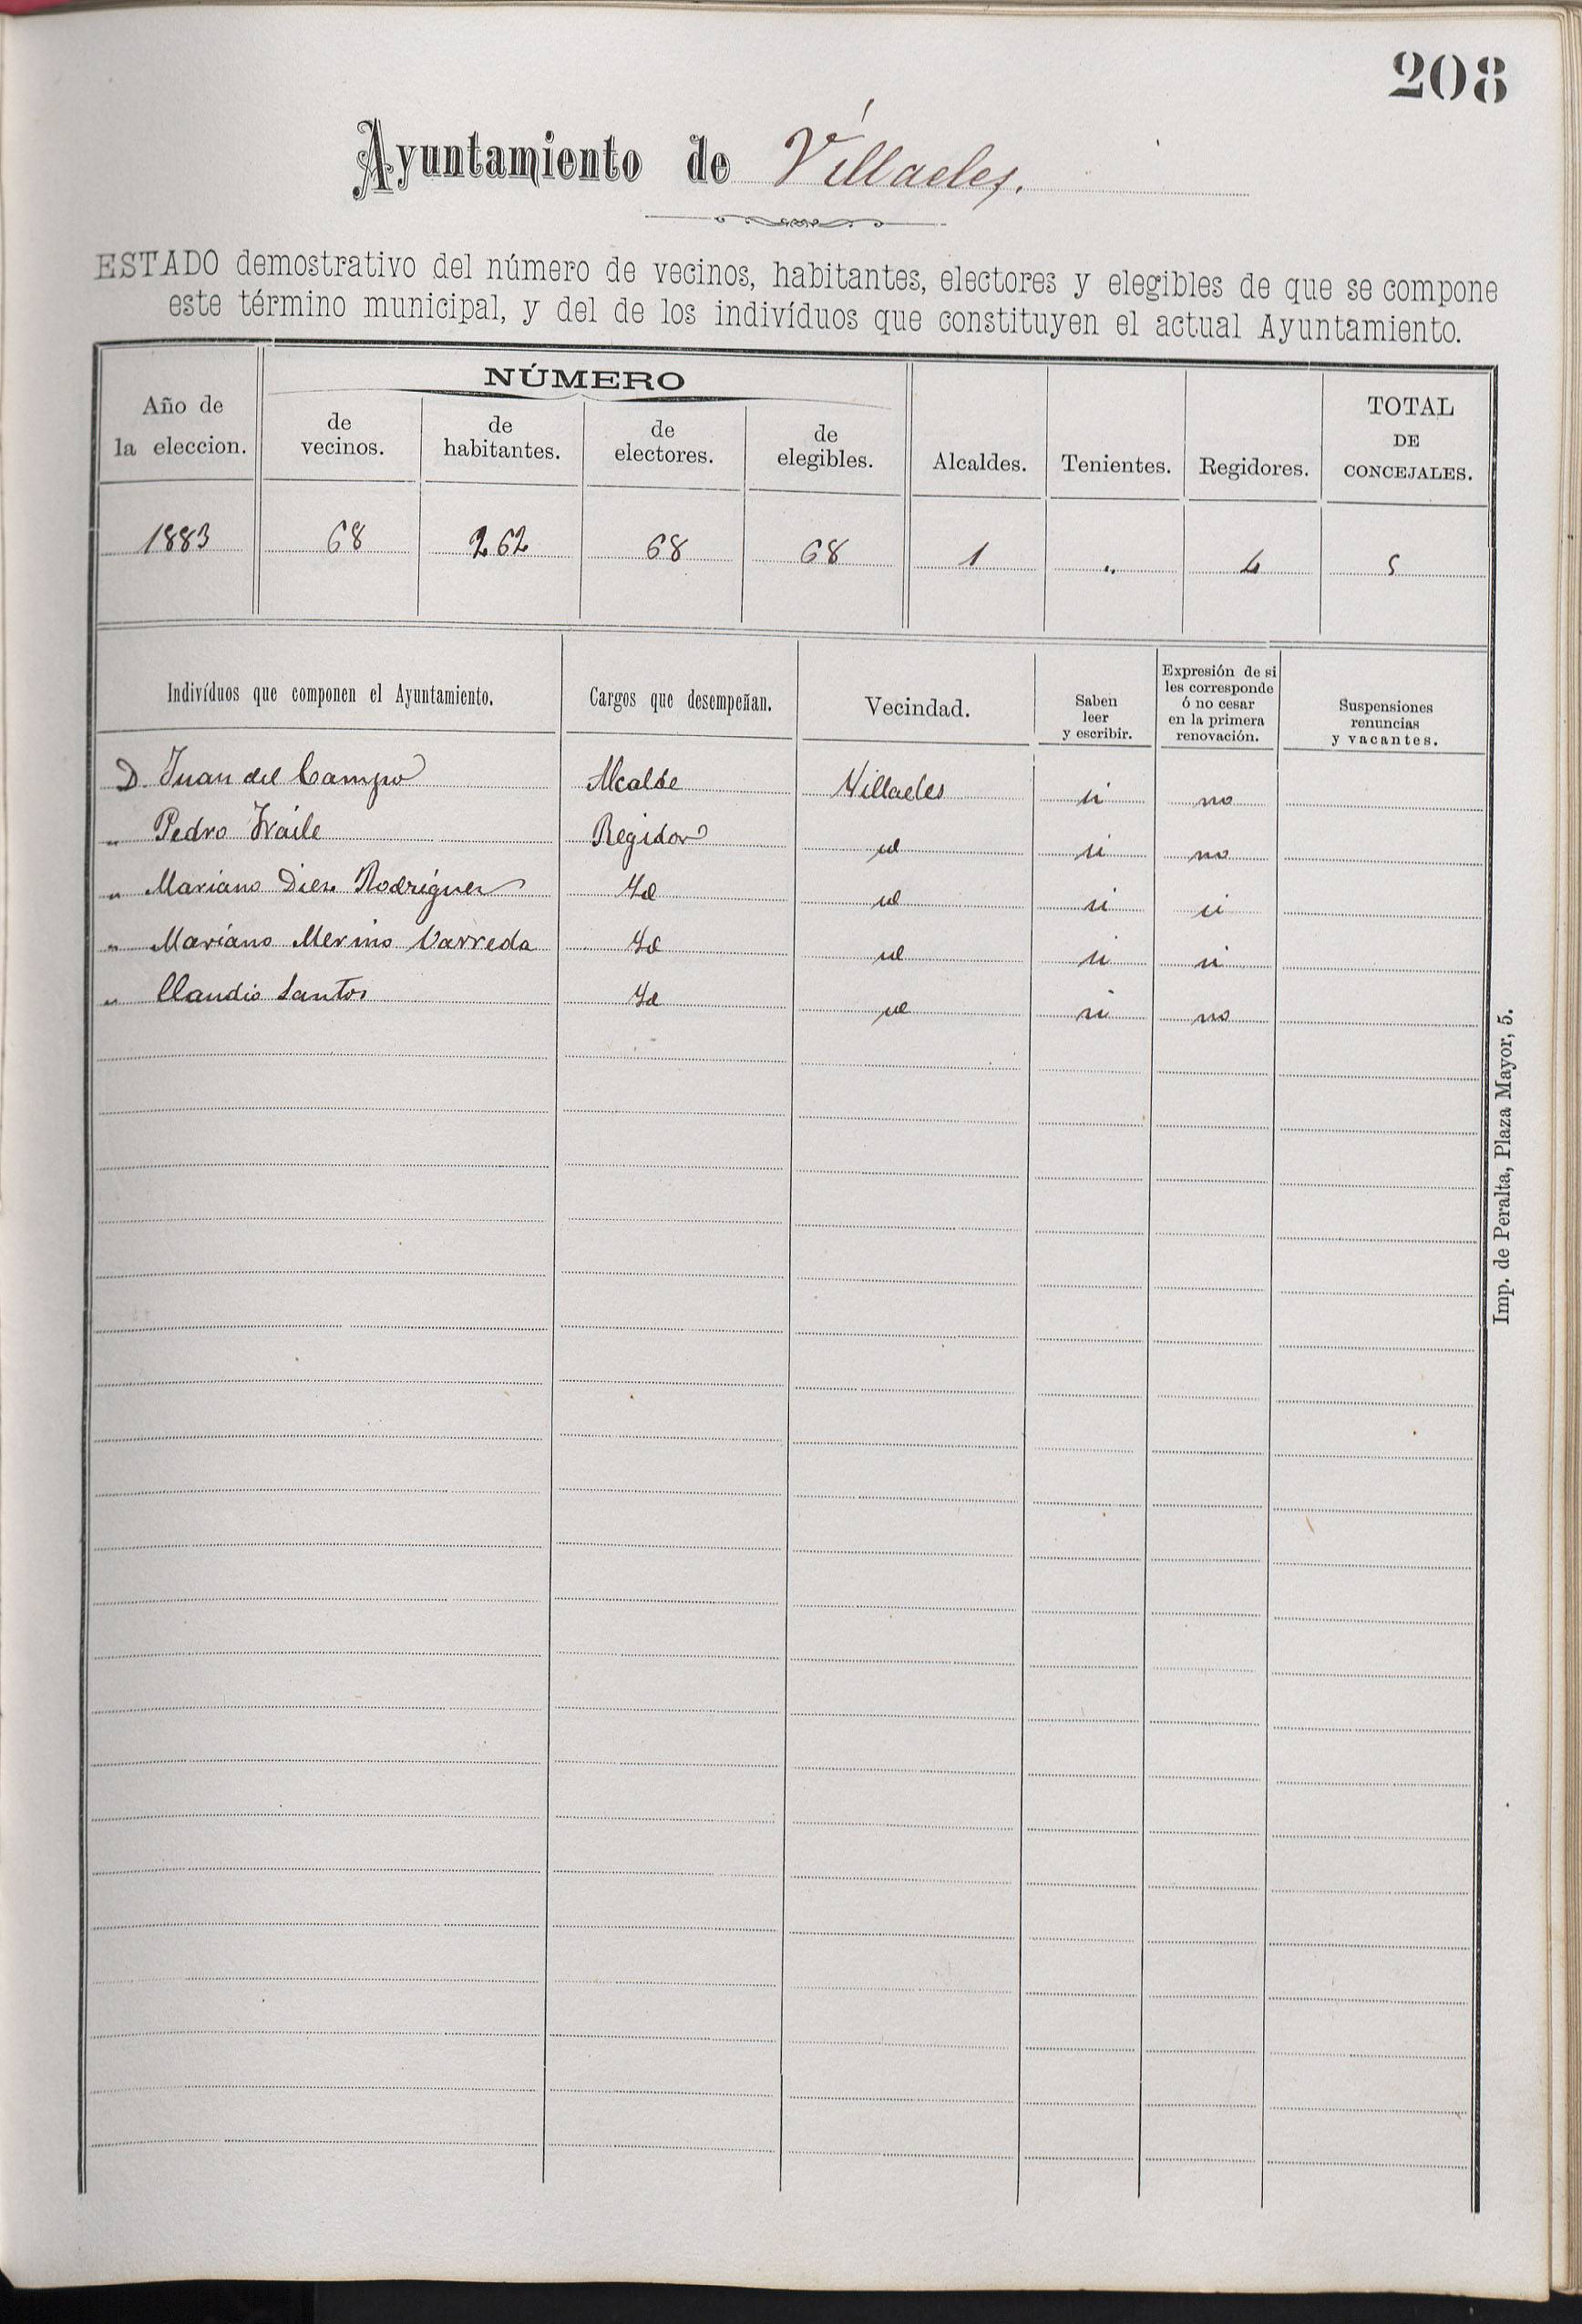 208
Ayuntamiento de Villaeles.
ESTADO demostrativo del número de vecinos, habitantes, electores y elegibles de que se compone
este término municipal, y del de los indivíduos que constituyen el actual Ayuntamiento.
Año de la eleccion. NÚMERO de vecinos. de habitantes. de electores. de elegibles. Alcaldes. Tenientes. Regidores. TOTAL DE CONCEJALES.
1883 68 262 68 68 1 " 4 5
Indivíduos que componen el Ayuntamiento. Cargos que desempeñan. Vecindad. Saben leer y escribir. Expresión de si les corresponde ó no cesar en la primera renovación. Suspensiones renuncias y vacantes.
D. Juan del Campo Alcalde Villaeles si no
" Pedro Fraile Regidor id si no
" Mariano Diez Rodriguez Id id si si
" Mariano Merino Varreda Id id si si
" Claudio Santos Id id si no
Imp. de Peralta, Plaza Mayor, 5.